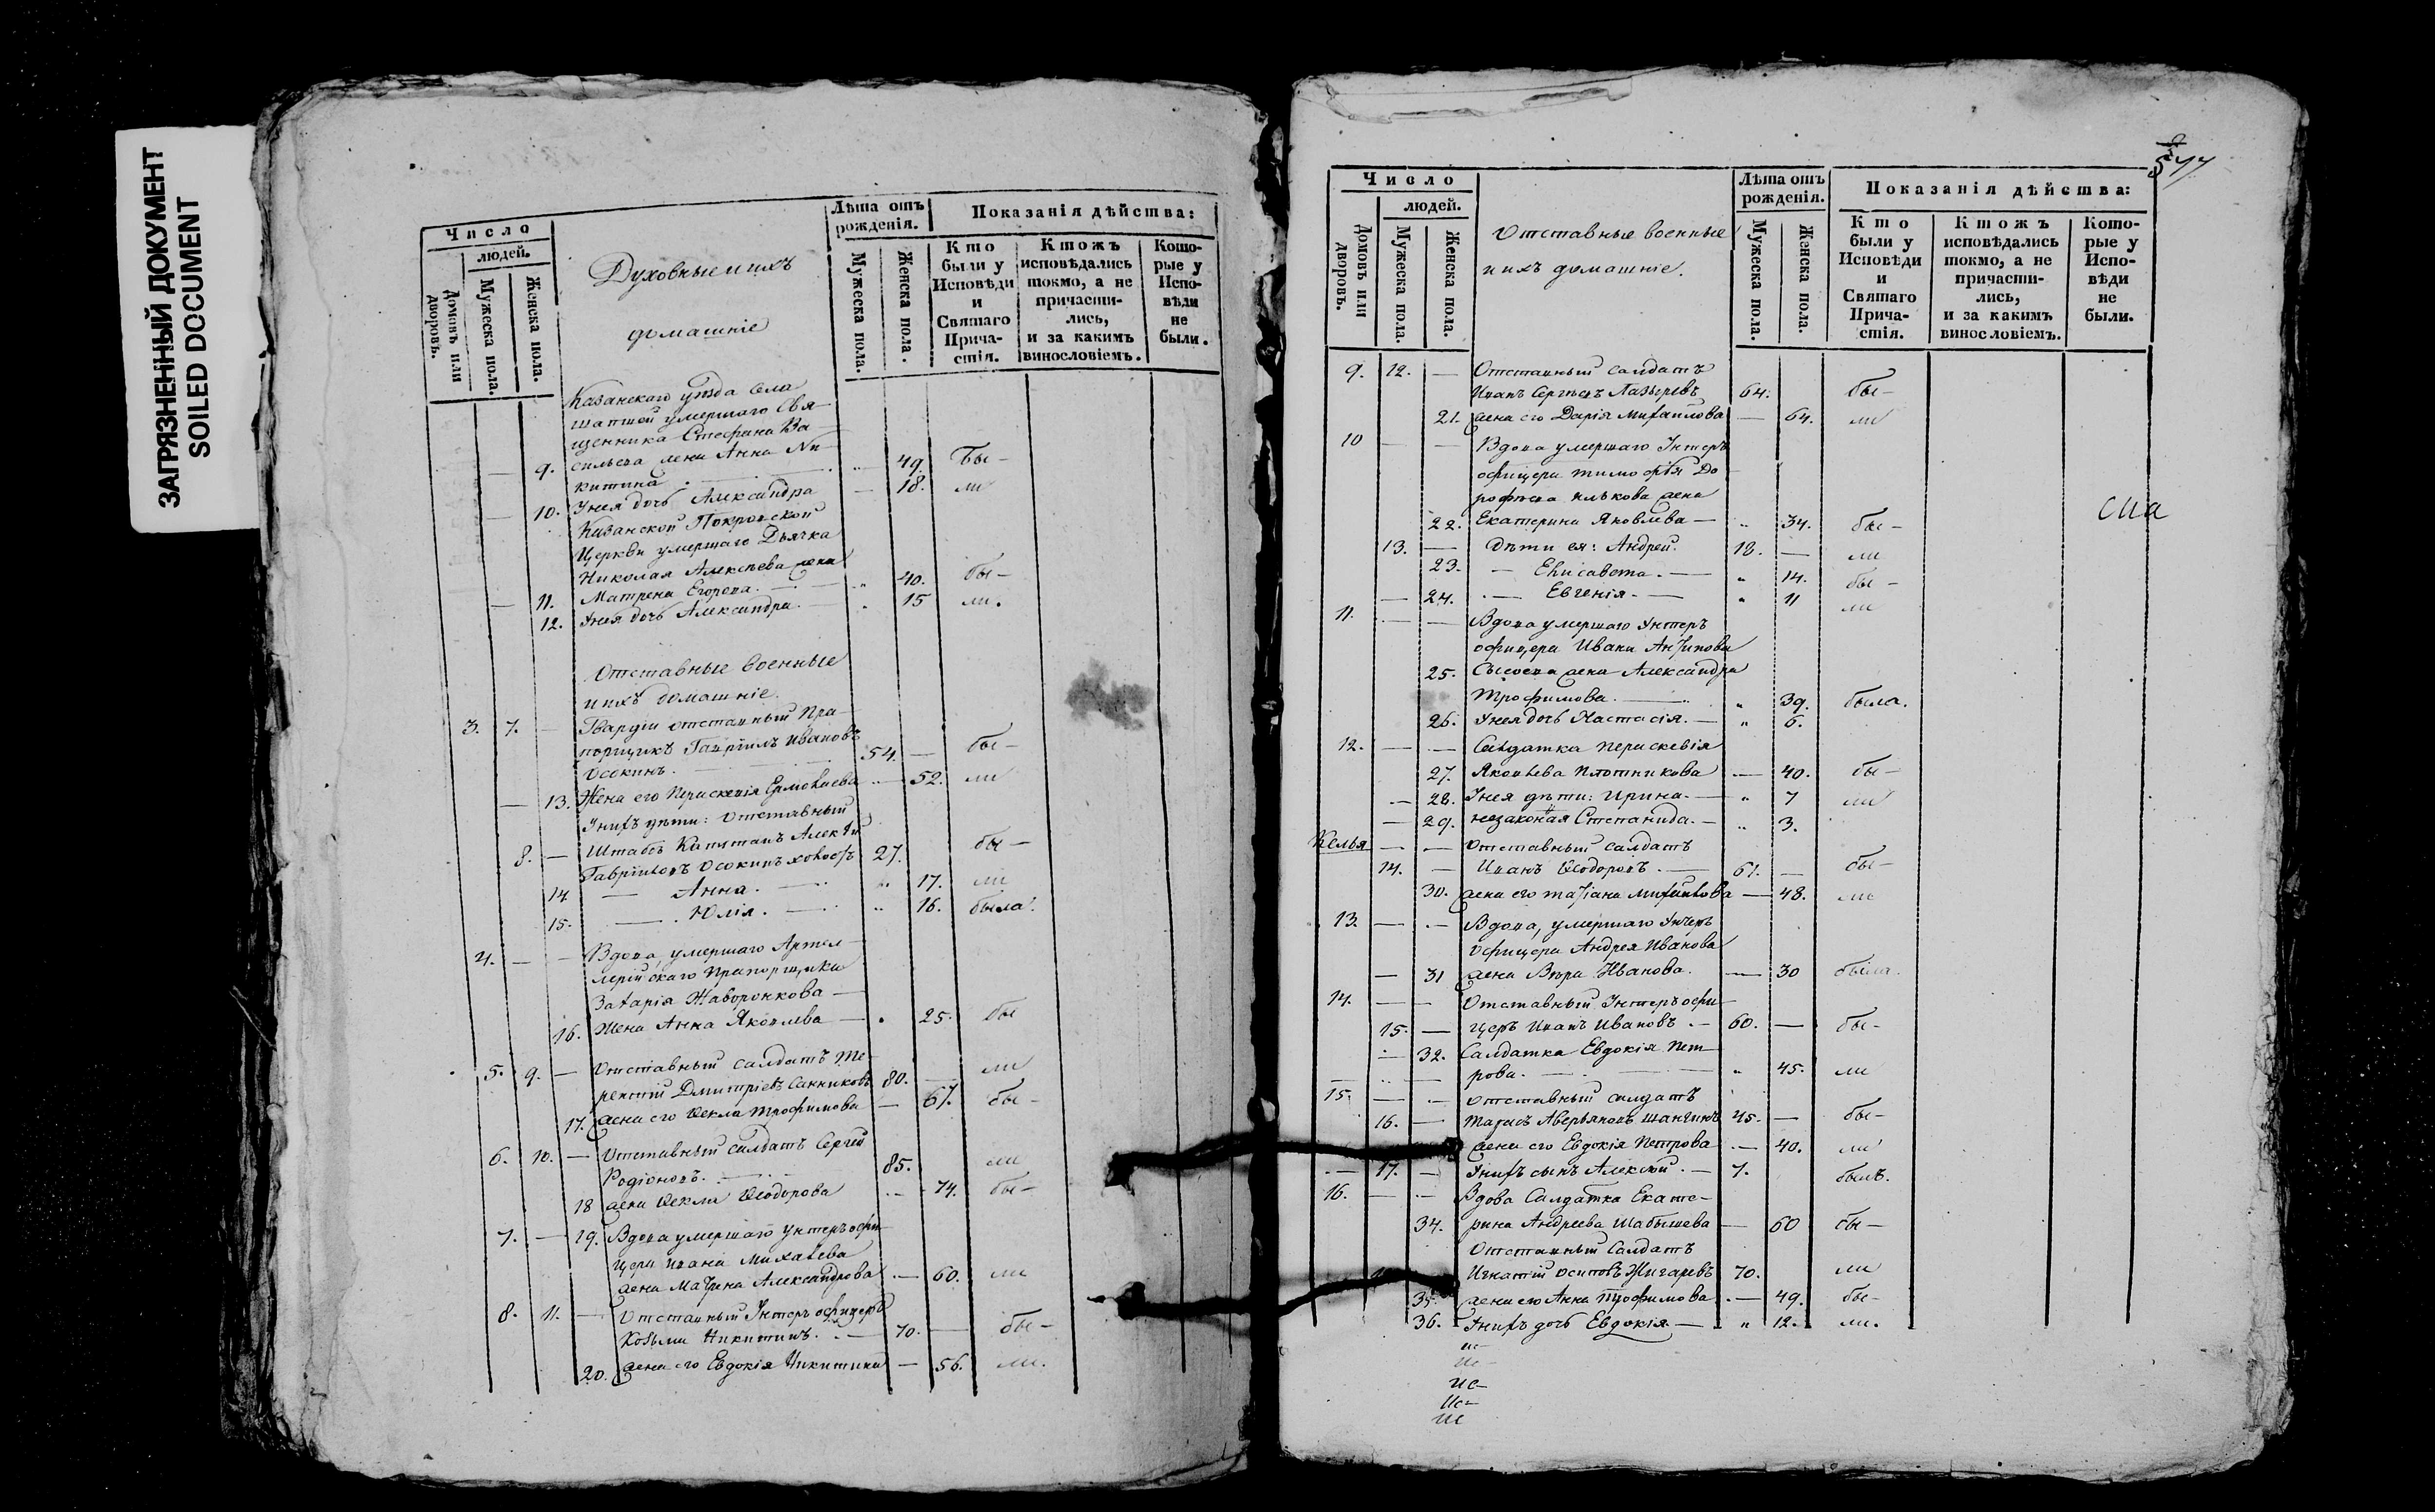 ЗАГРЯЗНЕННЫЙ ДОКУМЕНТ
SOILED DOCUMENT
Число
людей.
Домовъ или дворовъ.
Мужеска пола.
Женска пола.
Духовные и ихъ
домашніе
Лѣта отъ рожденія.
Мужеска пола.
Женска пола.
Показанія дѣйства:
Кто были у Исповѣди и Святаго Причастія.
Ктожъ исповѣдались токмо, а не причастились, и за какимъ винословіемъ.
Которые у Исповѣди не были.
Казанскаго уѣзда села
умершаго Свя-
щенника Стефана Ва-
9. сильева жена Анна Ни-
китина . — 49. бы-
10. У нея дочь Александра — 18. ли
Казанской Покровской
Церкви умершаго Дьячка
Николая Алексѣева жена
11. Матрена Егорова. — 40. бы-
12. У нея дочь Александра. — 15 ли.
Отставные военные
и ихъ домашніе.
3. 7. — Гвардіи отставный Пра-
порщикъ Гавріилъ Ивановъ
Осокинъ. 54. — бы-
— 13. Жена его Параскевія Ермолаева — 52. ли
У нихъ дѣти: отставный
8. — Штабсъ Капитанъ Алексѣй
Гавріиловъ Осокинъ холостъ 27. бы-
14 — Анна. — 17. ли
15. — Юлія. — 16. была.
4. — — Вдова, умершаго Артил-
лерійскаго Прапорщика
Захарія Жаворонкова —
16. Жена Анна Яковлева — 25. бы
5. 9. — Отставный салдатъ Те-
рентій Дмитріевъ Санниковъ 80. — ли
17. жена его Ѳекла Трофимова — 67. бы-
6. 10. — Отставный салдатъ Сергій
Родіоновъ. — 85. ли
18 жена Ѳекла Ѳеодорова — 74. бы-
7. — 19. Вдова умершаго Унтеръ офи-
цера Ивана Михалева
жена Марина Александрова — 60. ли
8. 11. — Отставный Унтеръ офицеръ
Козьма Никитинъ. — 70. — бы-
20. жена его Евдокія Никитина — 56. ли.
577
Число
людей.
Домовъ или дворовъ.
Мужеска пола.
Женска пола.
Отставные военные
и ихъ домашніе.
Лѣта отъ рожденія.
Мужеска пола.
Женска пола.
Показанія дѣйства:
Кто были у Исповѣди и Святаго Причастія.
Ктожъ исповѣдались токмо, а не причастились, и за какимъ винословіемъ.
Которые у Исповѣди не были.
9. 12. — Отставный салдатъ
Иванъ Сергѣевъ Лазаревъ 64. бы-
21. жена его Дарія Михаилова — 64. ли
10 — — Вдова умершаго Унтеръ
офицера Тимофѣя До-
рофеева жена
22. Екатерина Яковлева — 34. бы-
13. — Дѣти ея: Андрей. 18. — ли
23. — Елисавета. — 14. бы-
— 24. — Евгенія. — 11 ли
11. — — Вдова умершаго Унтеръ
офицера Ивана Антипова
25. Сысоева жена Александра
Трофимова. — 39. была.
26. У нея дочь Настасія. — 6.
12. — — Салдатка Параскевія
27. Яковлева Плотникова — 40. бы-
— 28. У нея дѣти: Ирина. — 7 ли
— 29. незаконная Степанида. — 3.
Келья — — Отставный салдатъ
14. — Иванъ Ѳеодоровъ. — 61. — бы-
30. жена его Татіана Михаилова — 48. ли
13. — — Вдова, умершаго Унтеръ
Офицера Андрея Иванова
— 31 жена Вѣра Иванова. — 30 была.
14. — — Отставный Унтеръ офи-
15. — церъ Иванъ Ивановъ. — 60. — бы-
— 32. Салдатка Евдокія Пет-
рова. — 45. ли
15. — — Отставный салдатъ
16. — Тарасъ Аверьяновъ 45. — бы-
жена его Евдокія Петрова — 40. ли
— 17. — У нихъ сынъ Алексѣй. — 7. былъ.
16. — — Вдова Салдатка Екате-
34. рина Андреева Шабышева — 60 бы-
Отставный Салдатъ
Игнатій Осиповъ Жигаревъ 70. ли
35. жена его Анна Трофимова — 49. бы-
36. У нихъ дочь Евдокія — 12. ли.